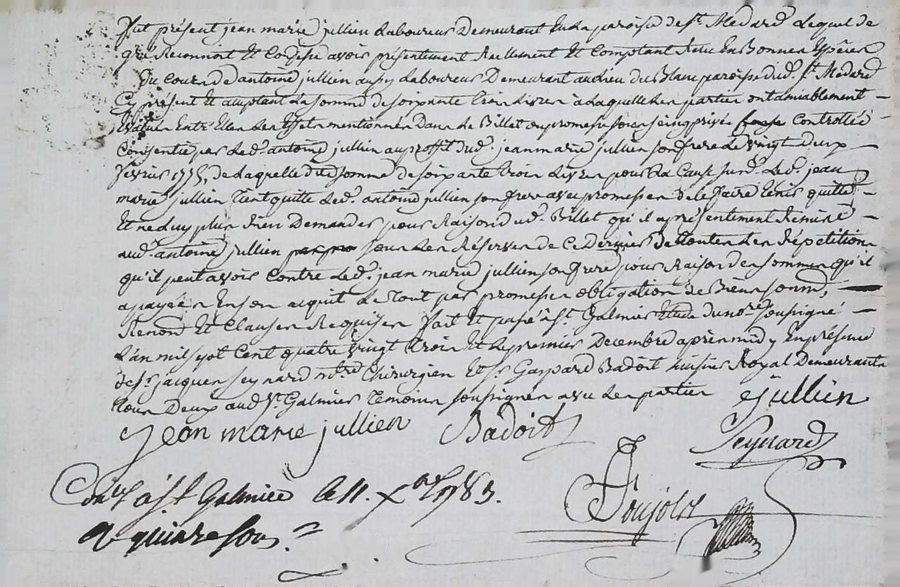 fut présent jean marie jullien Laboureur Demeurant En La paroisse de St. Medard Lequel de
gré Reconnoit Et Confesse avoir présentement Reellement Et Comptant Reçu En Bonnes Espèces
Du Cours d'antoine jullien aussy Laboureur Demeurant au Lieu du Blanc paroisse dud. St. Medard
Cy présent Et acceptant La somme de soixante trois Livres à Laquelle Les parties ont amiablement
Evaluer Entr'Elles Les Effets mentionnés Dans Le Billet ou promesse sous seing privée Controllée
Consentie par Led. antoine jullien au proffit dud. jean marie jullien son frere Le vingt Deux
fevrier 1775, de Laquelle ditte somme de soixante trois Livres pour La Cause susd. Led. jean
marie jullien Tient quitte Led. antoine jullien son frere avec promesse De Le faire tenir quitte
Et ne Luy plus Rien Demander pour Raison dud. Billet qu'il a présentement Remis
aud. antoine jullien sous Les Réserves de Ce Dernier De toutes Les Répétitions
qu'il peut avoir Contre Led. jean marie jullien son frere pour Raison des sommes qu'il
a payées En son acquit Le tout par promesses obligation De Biens soumis,
Renond. Et Clauses Requises fait Et passé à St. Galmier Etude du not. soussigné
L'an mil sept Cent quatre vingt trois Et Le premier Decembre après midy En présence
de Sr. jacques seynard mtre Chirurgien Et Sr. Gaspard Badoit huissier Royal Demeurants
tous Deux aud. St. Galmier temoins soussignés avec Les parties
jullien
jean marie jullien Badoit Seynard
Con.lé à St. Galmier le 11. Xbre 1783.
R quinze sous